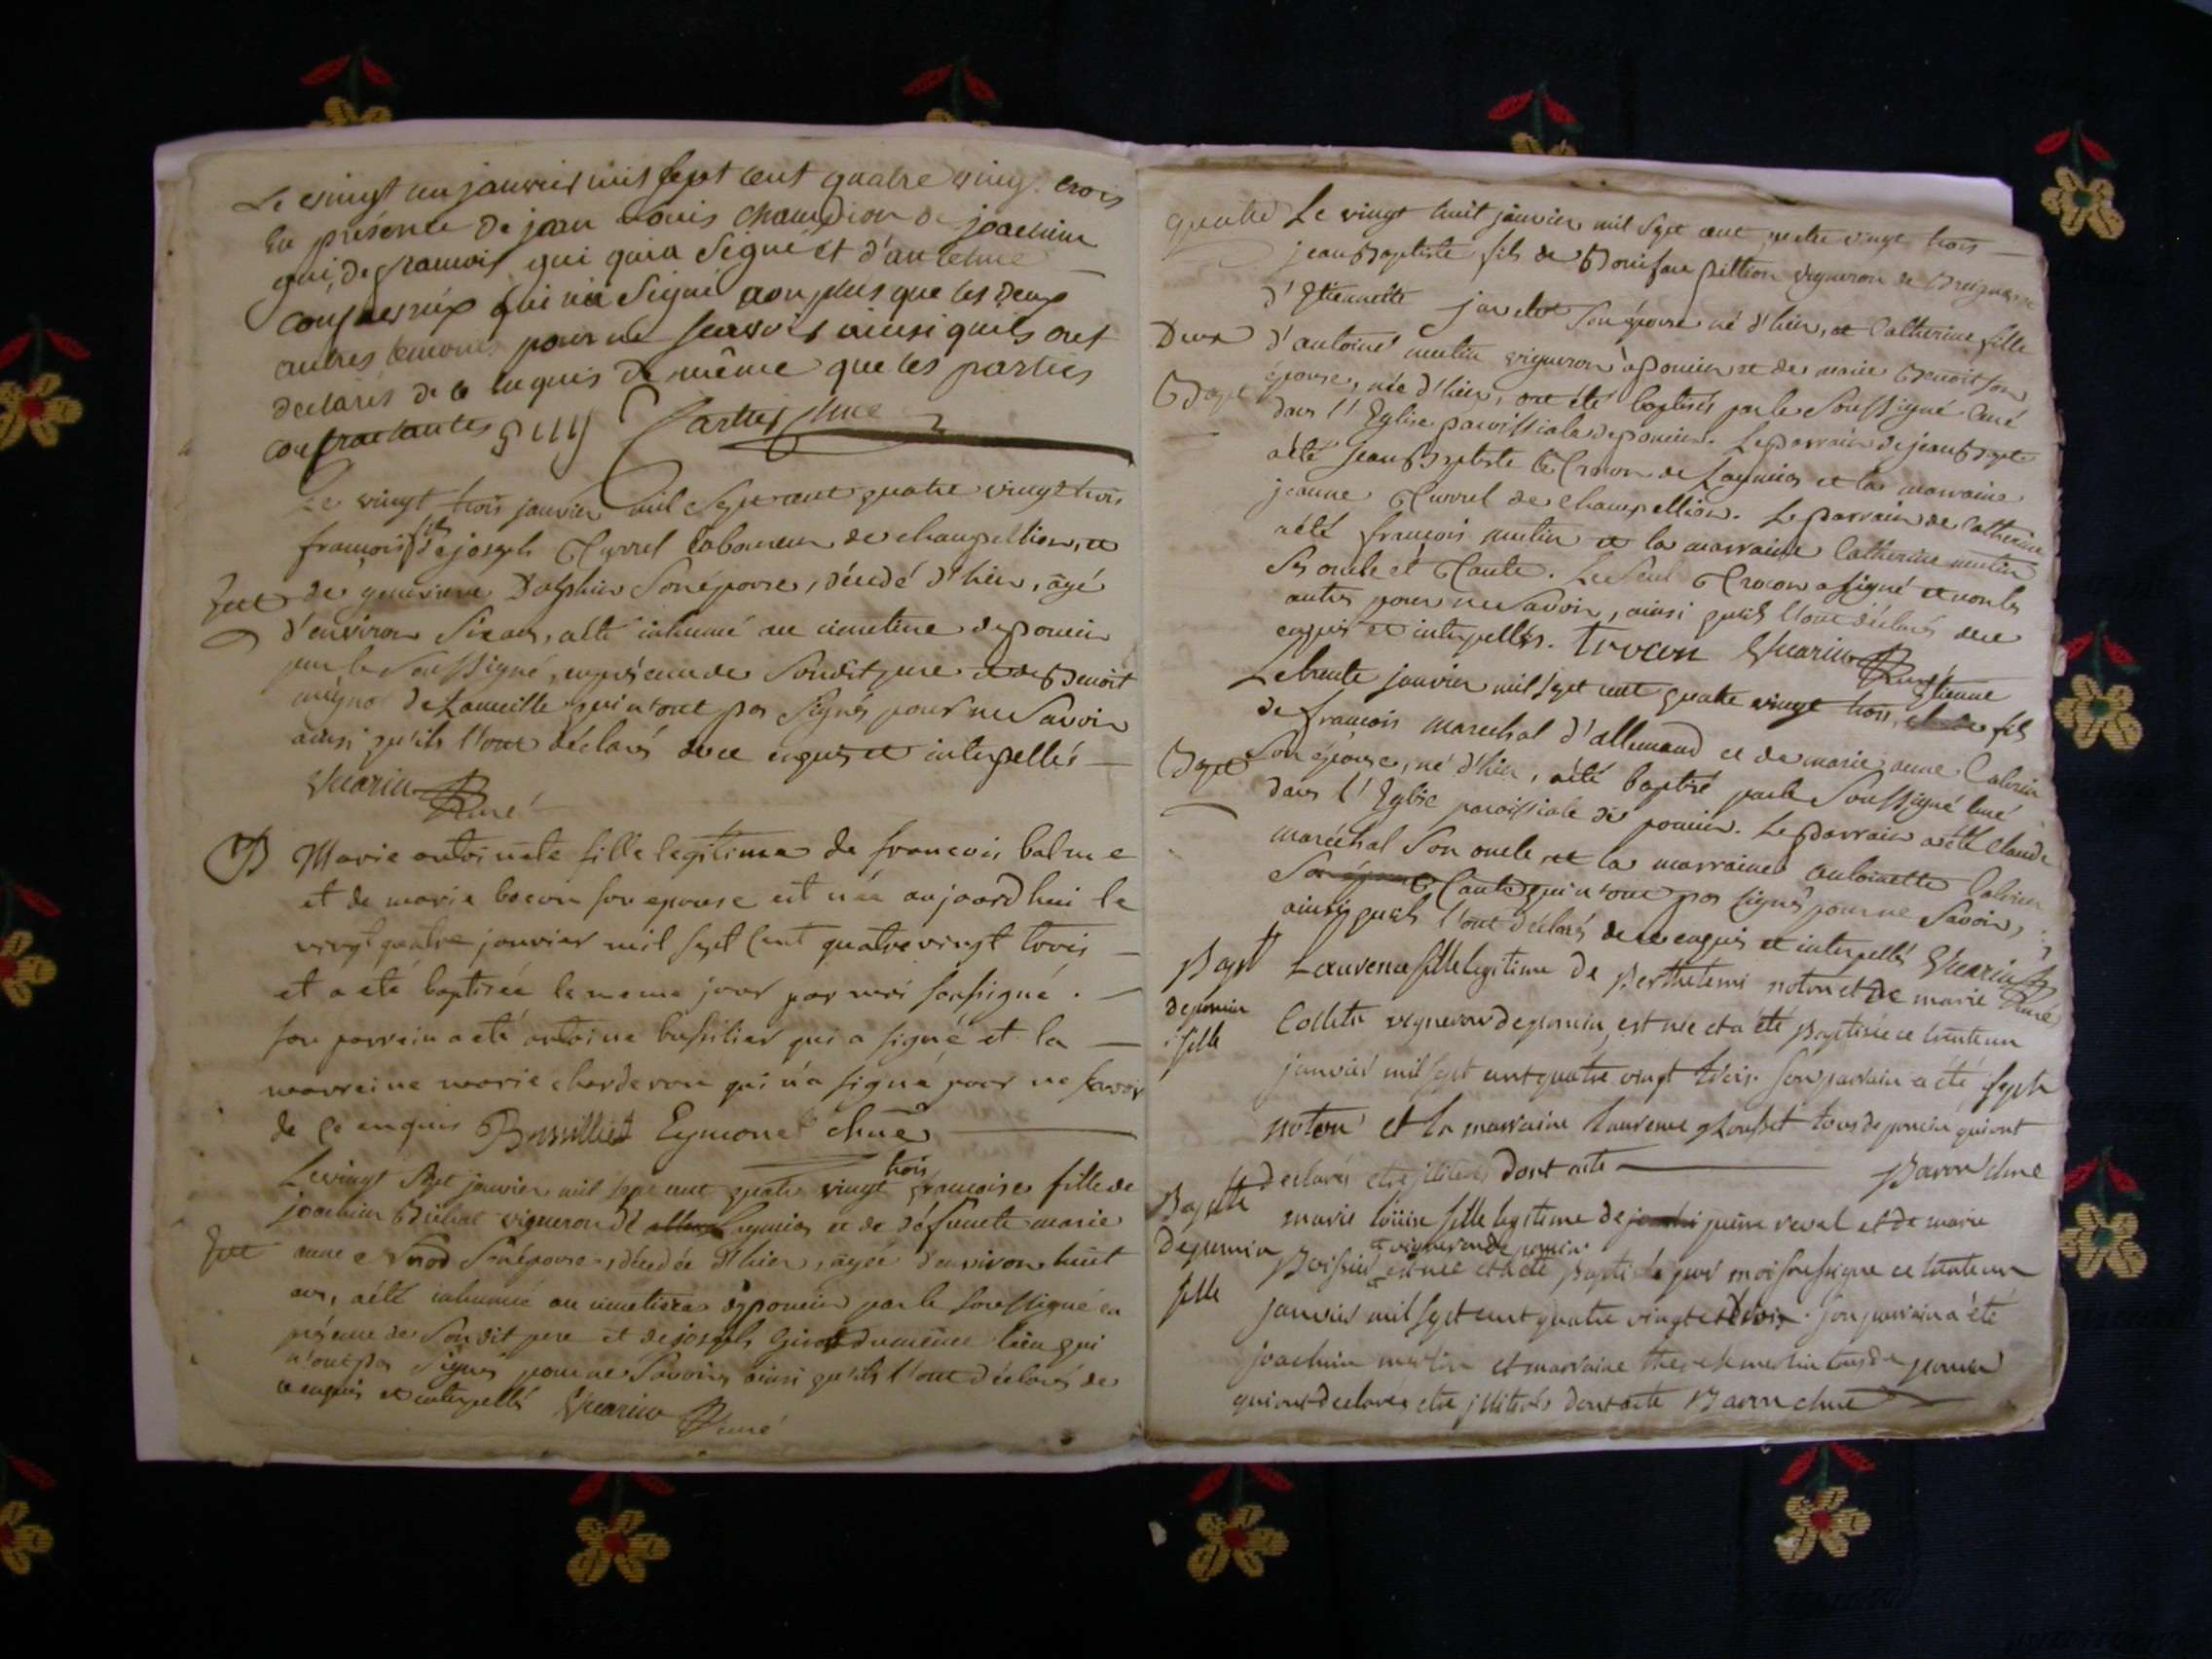 Le vingt un janvier mil sept cent quatre vingt trois
En présence de jean Louis Champion de joachim
gui, de francois gui qui a signé et d'antelme
qui n'a signé non plus que les deux
autres temoins pour ne scavoir ainsi quils ont
declarés de ce enquis de même que les parties
contractantes Cartier Curé
Le vingt trois janvier mil sept cent quatre vingt trois
françois fils de joseph Curvel laboureur de champollion, et
de genevieve Dolphin son épouse, décédé d'hier, âgé
d'environ six ans, a été inhumé au cimetiere de poncin
par le soussigné, en présence de son dit pere et de Benoit
mignot de Lameille qui n'ont pas signés pour ne savoir
ainsi qu'ils l'ont déclarés de ce enquis et interpellés
Guerin Curé
B Marie antoinete fille legitime de francois balme
et de marie bocon son epouse est née aujoord hui le
vingt quatre janvier mil sept cent quatre vingt trois
et a eté baptisée le meme jour par moi soussigné.
son parrain a eté antoine bussilier qui a signé et la
marreine marie charderon qui n'a signé pour ne savoir
de ce enquis Bussilliet Eymonet Curé
Le vingt sept janvier mil sept cent quatre vingt trois françoise fille de
joachim Bichat vigneron de et de défuncte marie
anne son épouse, décédée d'hier, agée d'environ huit
ans, a été inhumée au cimetiere de poncin par le soussigné en
présence de son dit pere et de joseph Girod du même lieu qui
n'ont pas signés pour ne savoir ainsi qu'ils l'ont déclarés de
ce enquis et interpellés Guerin Curé
quatre Le vingt huit janvier mil sept cent quatre vingt trois
jean Baptiste fils de Boniface pittion vigneron de Breignes et
d'Etiennette javelot son épouse né d'hier, et Catherine fille
Deux d'antoine mutin vigneron à poncin et de marie Benoit son
Bapt épouse, née d'hier, ont été baptisés par le soussigné Curé
dans l'Eglise paroissiale de poncin. Le parrain de jean Bapte
a été jean Baptiste Trocon de Leymiat et la marraine
jeanne Curvel de Champollion. Le parrain de Catherine
a été françois mutin et la marraine Catherine mutin
ses oncle et Tante. Le seul Trocon a signé et non les
autres pour ne savoir, ainsi quils l'ont déclarés de ce
enquis et interpellés. Trocon Guerin Curé
Le trente janvier mil sept cent quatre vingt trois, Etienne fils
de françois marechal d'allemand et de marie anne Cabrin
Bapt son épouse, né d'hier, a été baptisé par le soussigné Curé
dans l'Eglise paroissiale de poncin. Le parrain a été Claude
maréchal son oncle et la marraine antoinette Cabrin
Tante qui n'ont pas signés pour ne savoir,
ainsi quils l'ont déclarés de ce enquis et interpellés Guerin Curé
Bapt Laurence fille legitime de Berthelemi noton et de marie
de poncin Colletta vigneron de poncin, est née et a été Baptisée ce trente un
fille janvier mil sept cent quatre vingt trois. son parrain a été joseph
noton et la marraine laurence tous de poncin qui ont
declarés etre illiterés dont acte Baron Curé
Baptte marie loüise fille legitime de reval et de marie
de poncin Boissier vigneron de poncin est née et a été baptisée par moi soussigné ce trente un
fille janvier mil sept cent quatre vingt et trois. son parrain a été
joachim merlin et marraine therese merlin tous de poncin
qui ont declarés etre illiterés dont acte Baron Curé